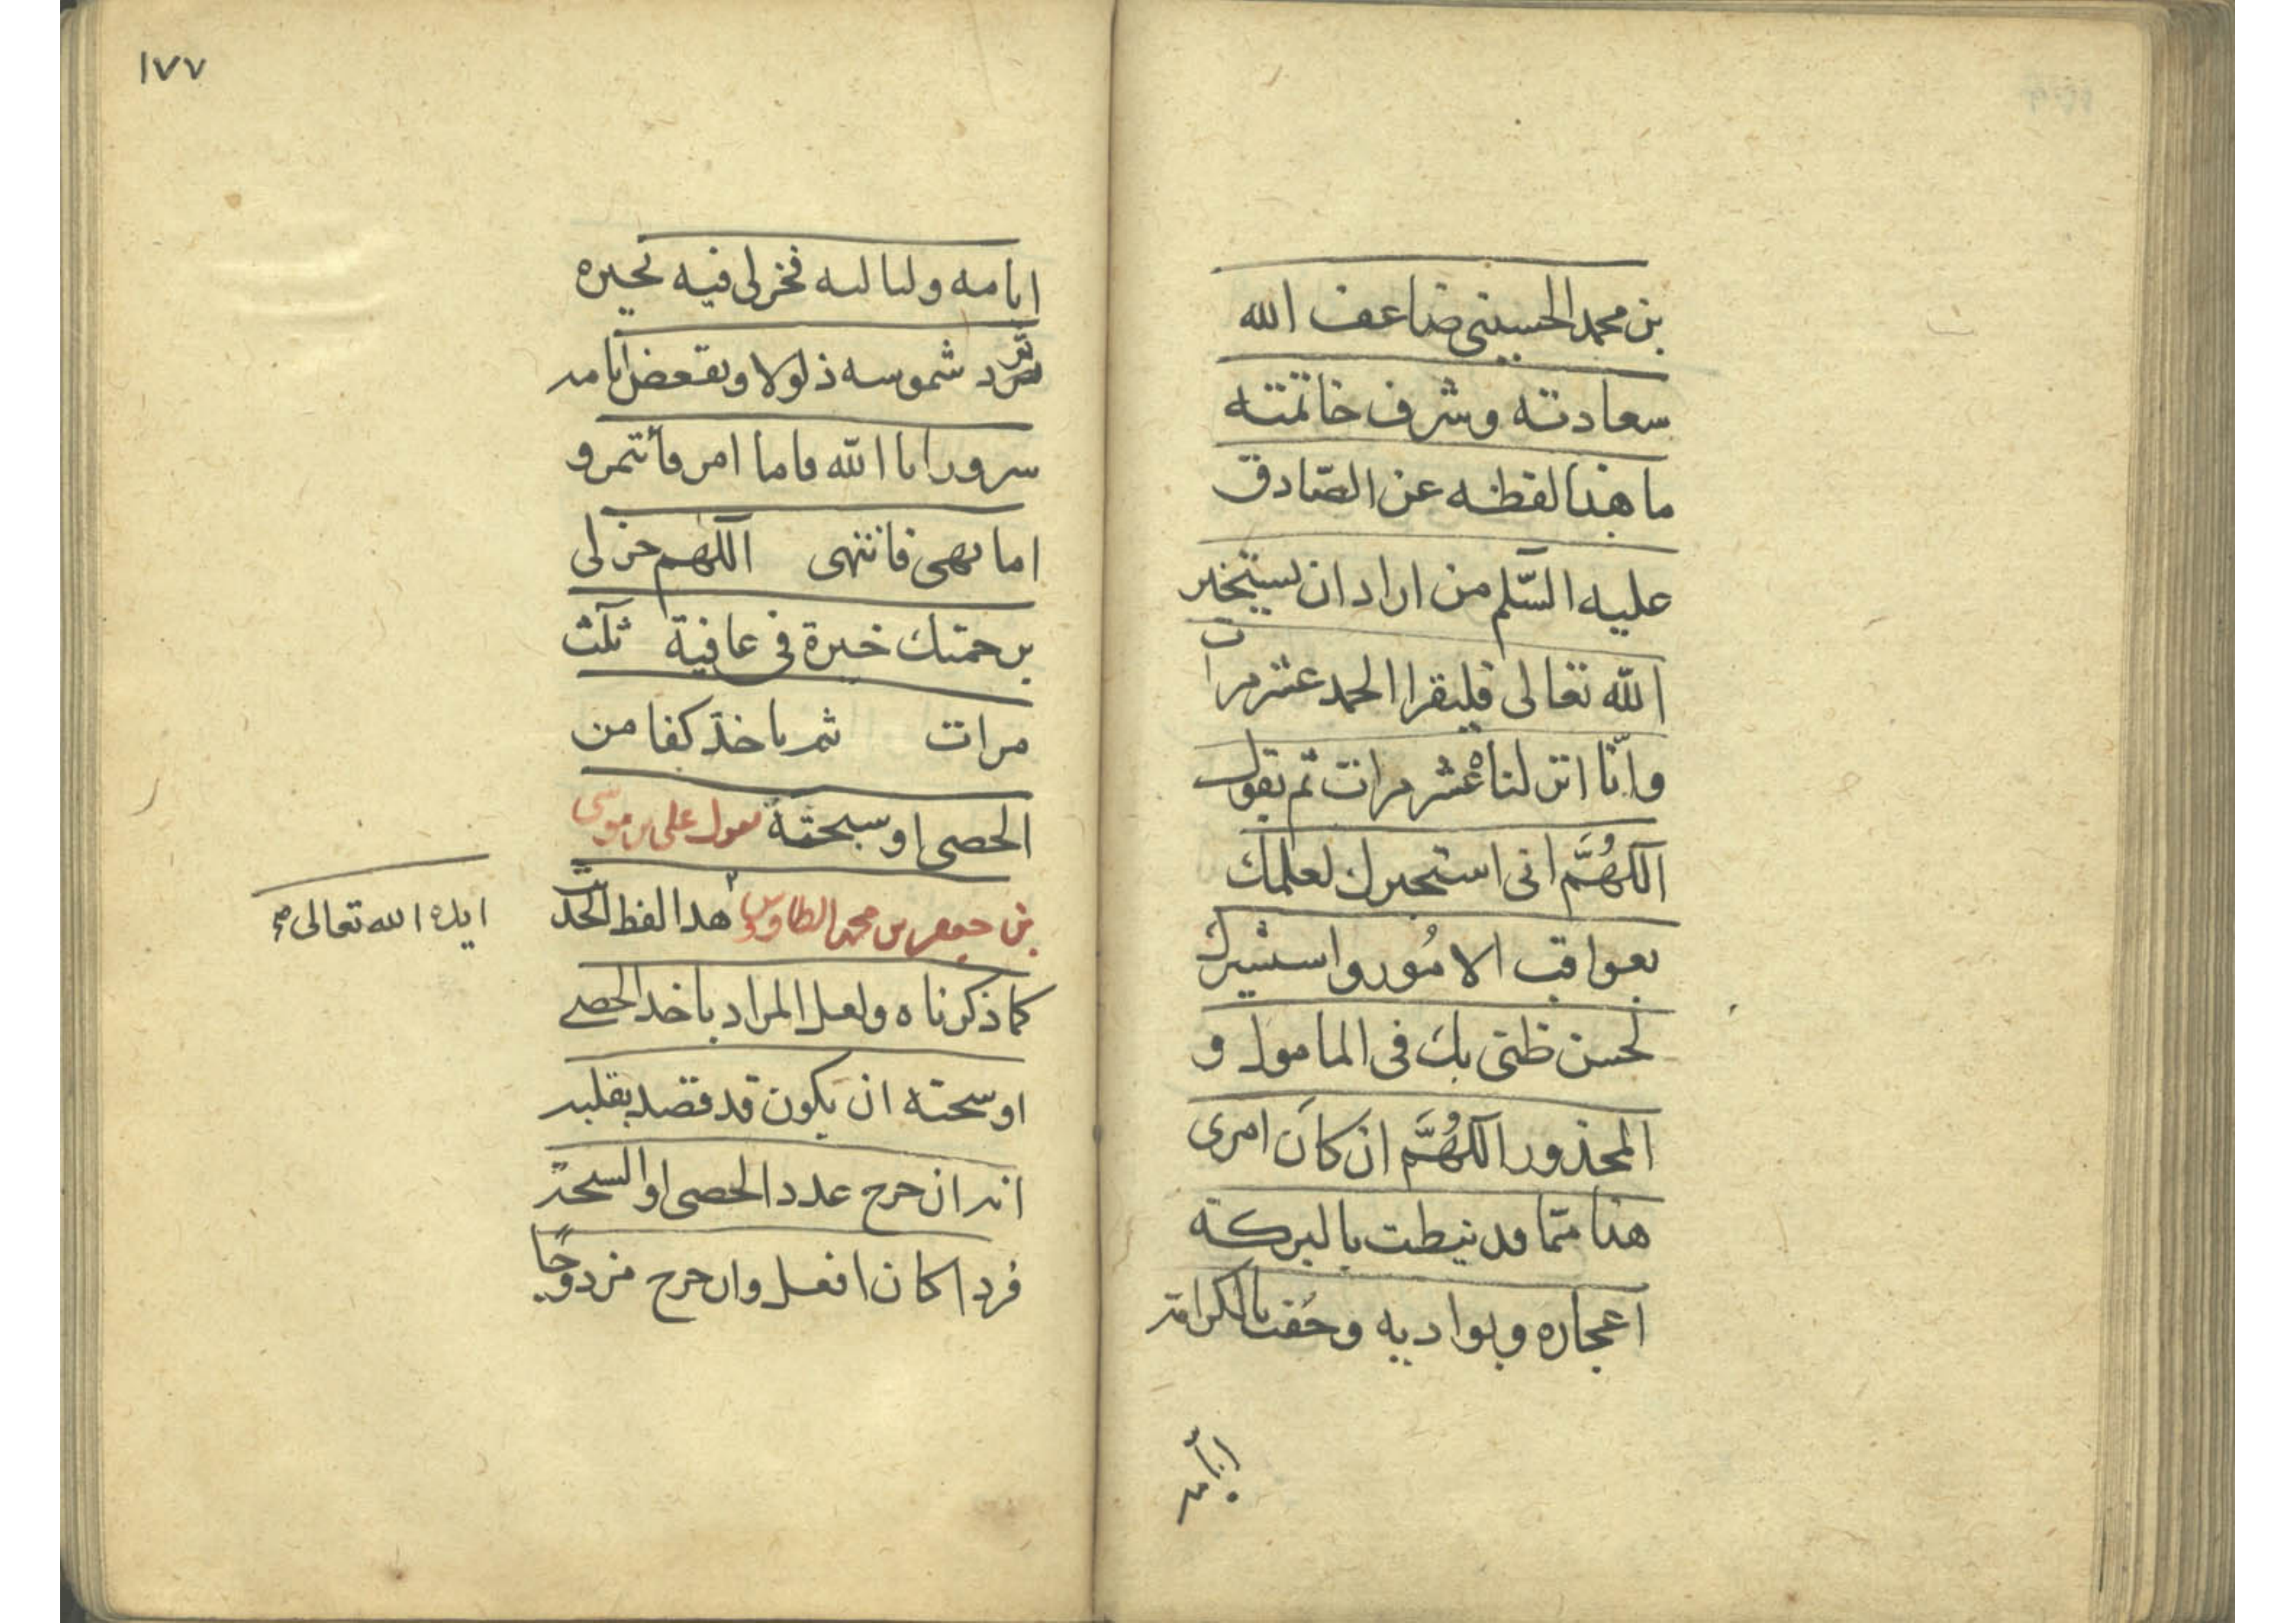 بن محمد الحسيني ضاعف الله
سعادته وشرف خاتمته
ما هذا لفظه عن الصّادق
عليه السّلم من اراد ان يستخير
الله تعالى فليقرا الحمد عشر مرات
وانّا انزلناه عشر مرات ثم يقول
اللهُمَّ انى استخيرك لعلمك
بعواقب الامُور واستشيرك
لحسن ظنى بك فى المامول و
المحذور اللهُمَّ ان كان امرى
هذا ممّا قد نيطت بالبركة
اعجازه وبواديه وحُفت بالكرامة
ايامه
١٧٧
ايامه ولياليه فخر لى فيه بخيره
ترد شموسه ذلولا وتقعض ايامه
سرورا يا الله فاما امر فأتمر و
اما نهى فانتهى اللهم خر لى
برحمتك خيرة فى عافية ثلث
مرات ثم ياخذ كفا من
الحصى او سبحته يقول على بن موسى
بن جعفر بن محمد الطاوس هذا لفظ الحديث
ايده الله تعالى صح
كما ذكرناه ولعل المراد باخذ الحصى
او سبحته ان يكون قد قصد بقلبه
انه ان خرج عدد الحصى او السبحة
فردا كان افعل وان خرج مزدوجًا